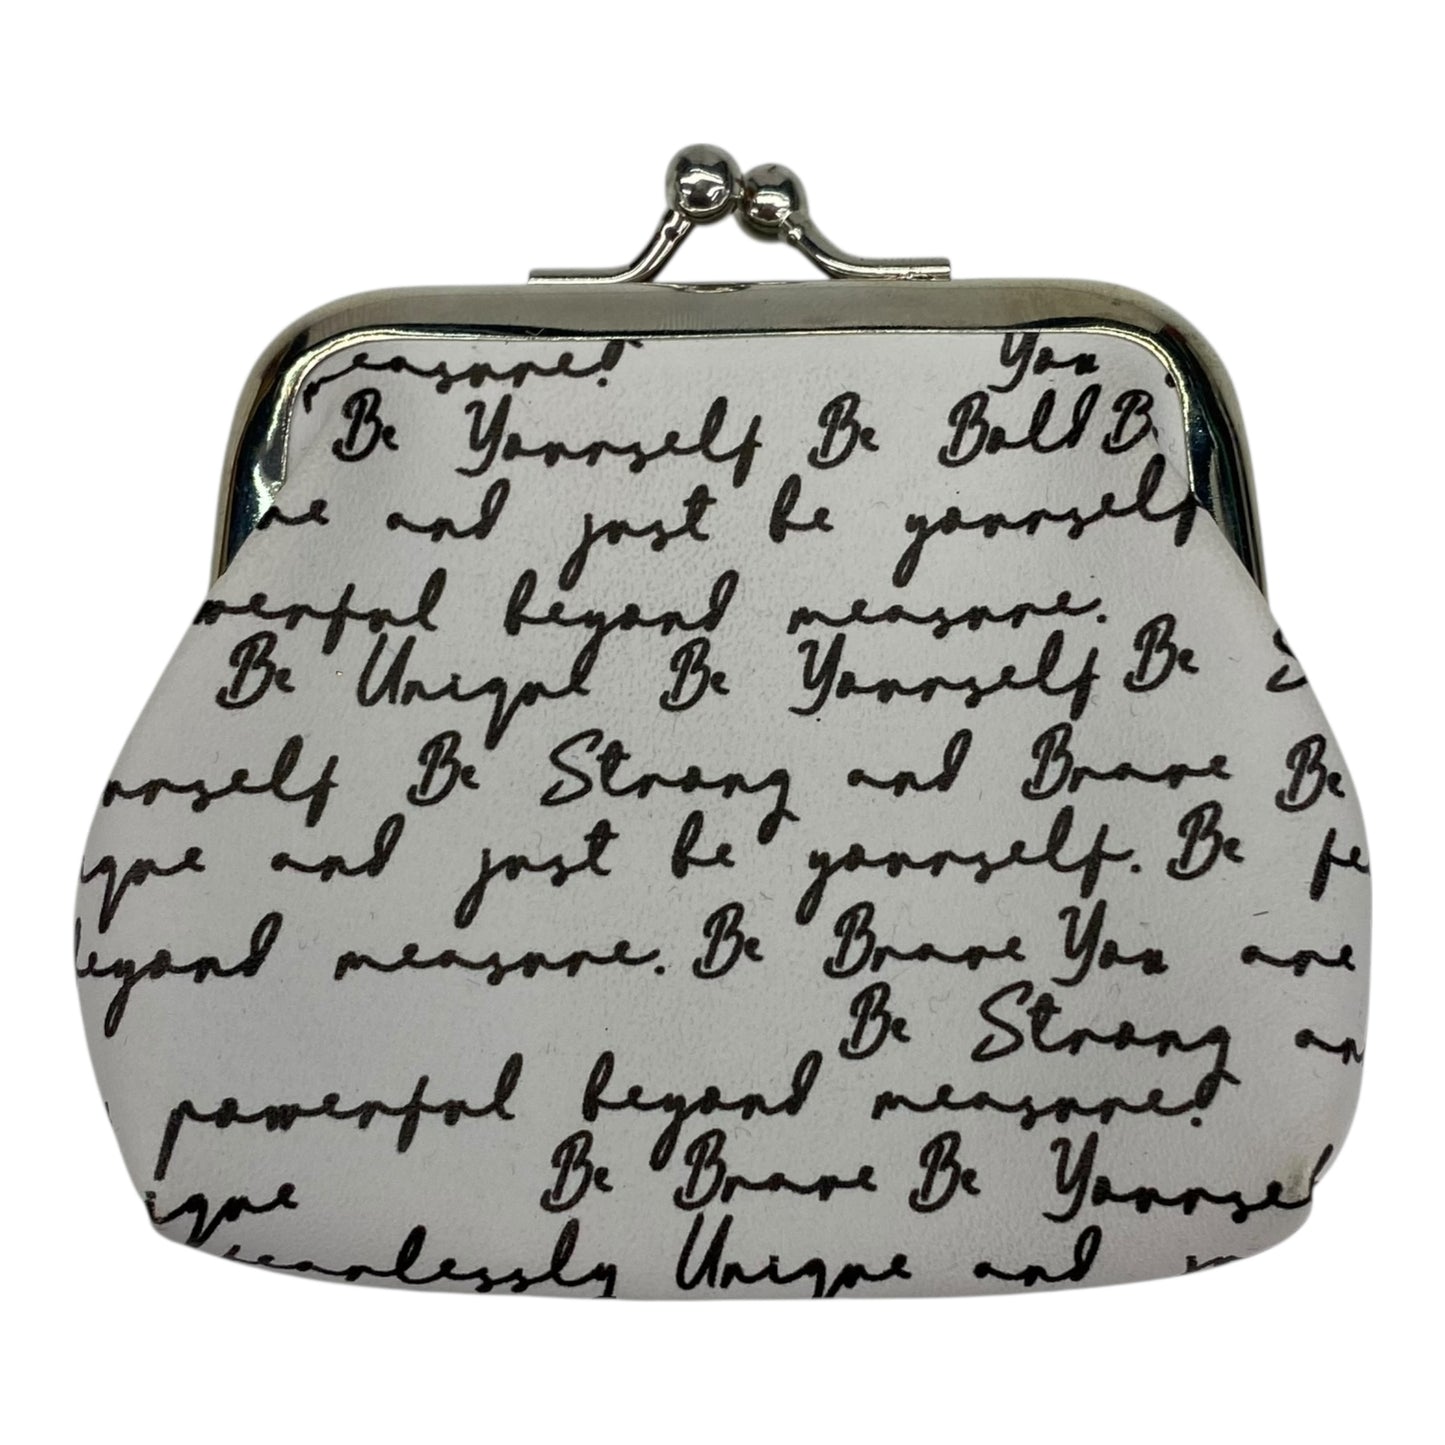 measure! You
Be Yourself Be Bold B
ue and just be yourself
werful beyond measure.
Be Unique Be Yourself Be S
urself Be Strong and Brave Be
ique and just be yourself. Be fe
beyond measure. Be Brave You are
Be Strong an
powerful beyond measure!
ique Be Brave Be Yourself
fearlessly Unique and ju